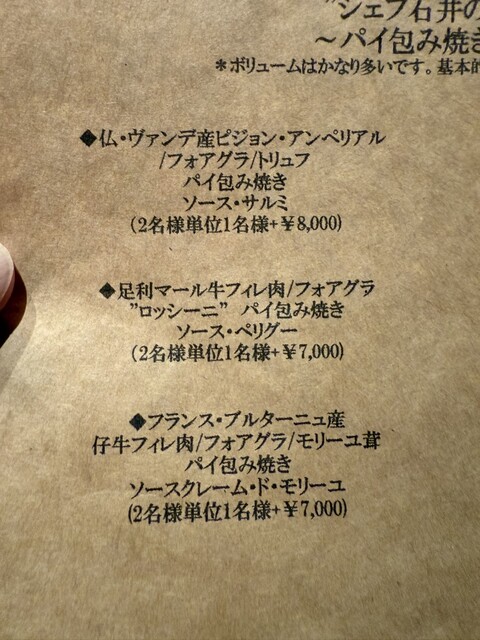 "シェフ石井の
～パイ包み焼き
＊ボリュームはかなり多いです。基本的
◆仏・ヴァンデ産ピジョン・アンペリアル
/フォアグラ/トリュフ
パイ包み焼き
ソース・サルミ
(2名様単位1名様+￥8,000)
◆足利マール牛フィレ肉/フォアグラ
"ロッシーニ" パイ包み焼き
ソース・ペリグー
(2名様単位1名様+￥7,000)
◆フランス・ブルターニュ産
仔牛フィレ肉/フォアグラ/モリーユ茸
パイ包み焼き
ソースクレーム・ド・モリーユ
(2名様単位1名様+￥7,000)